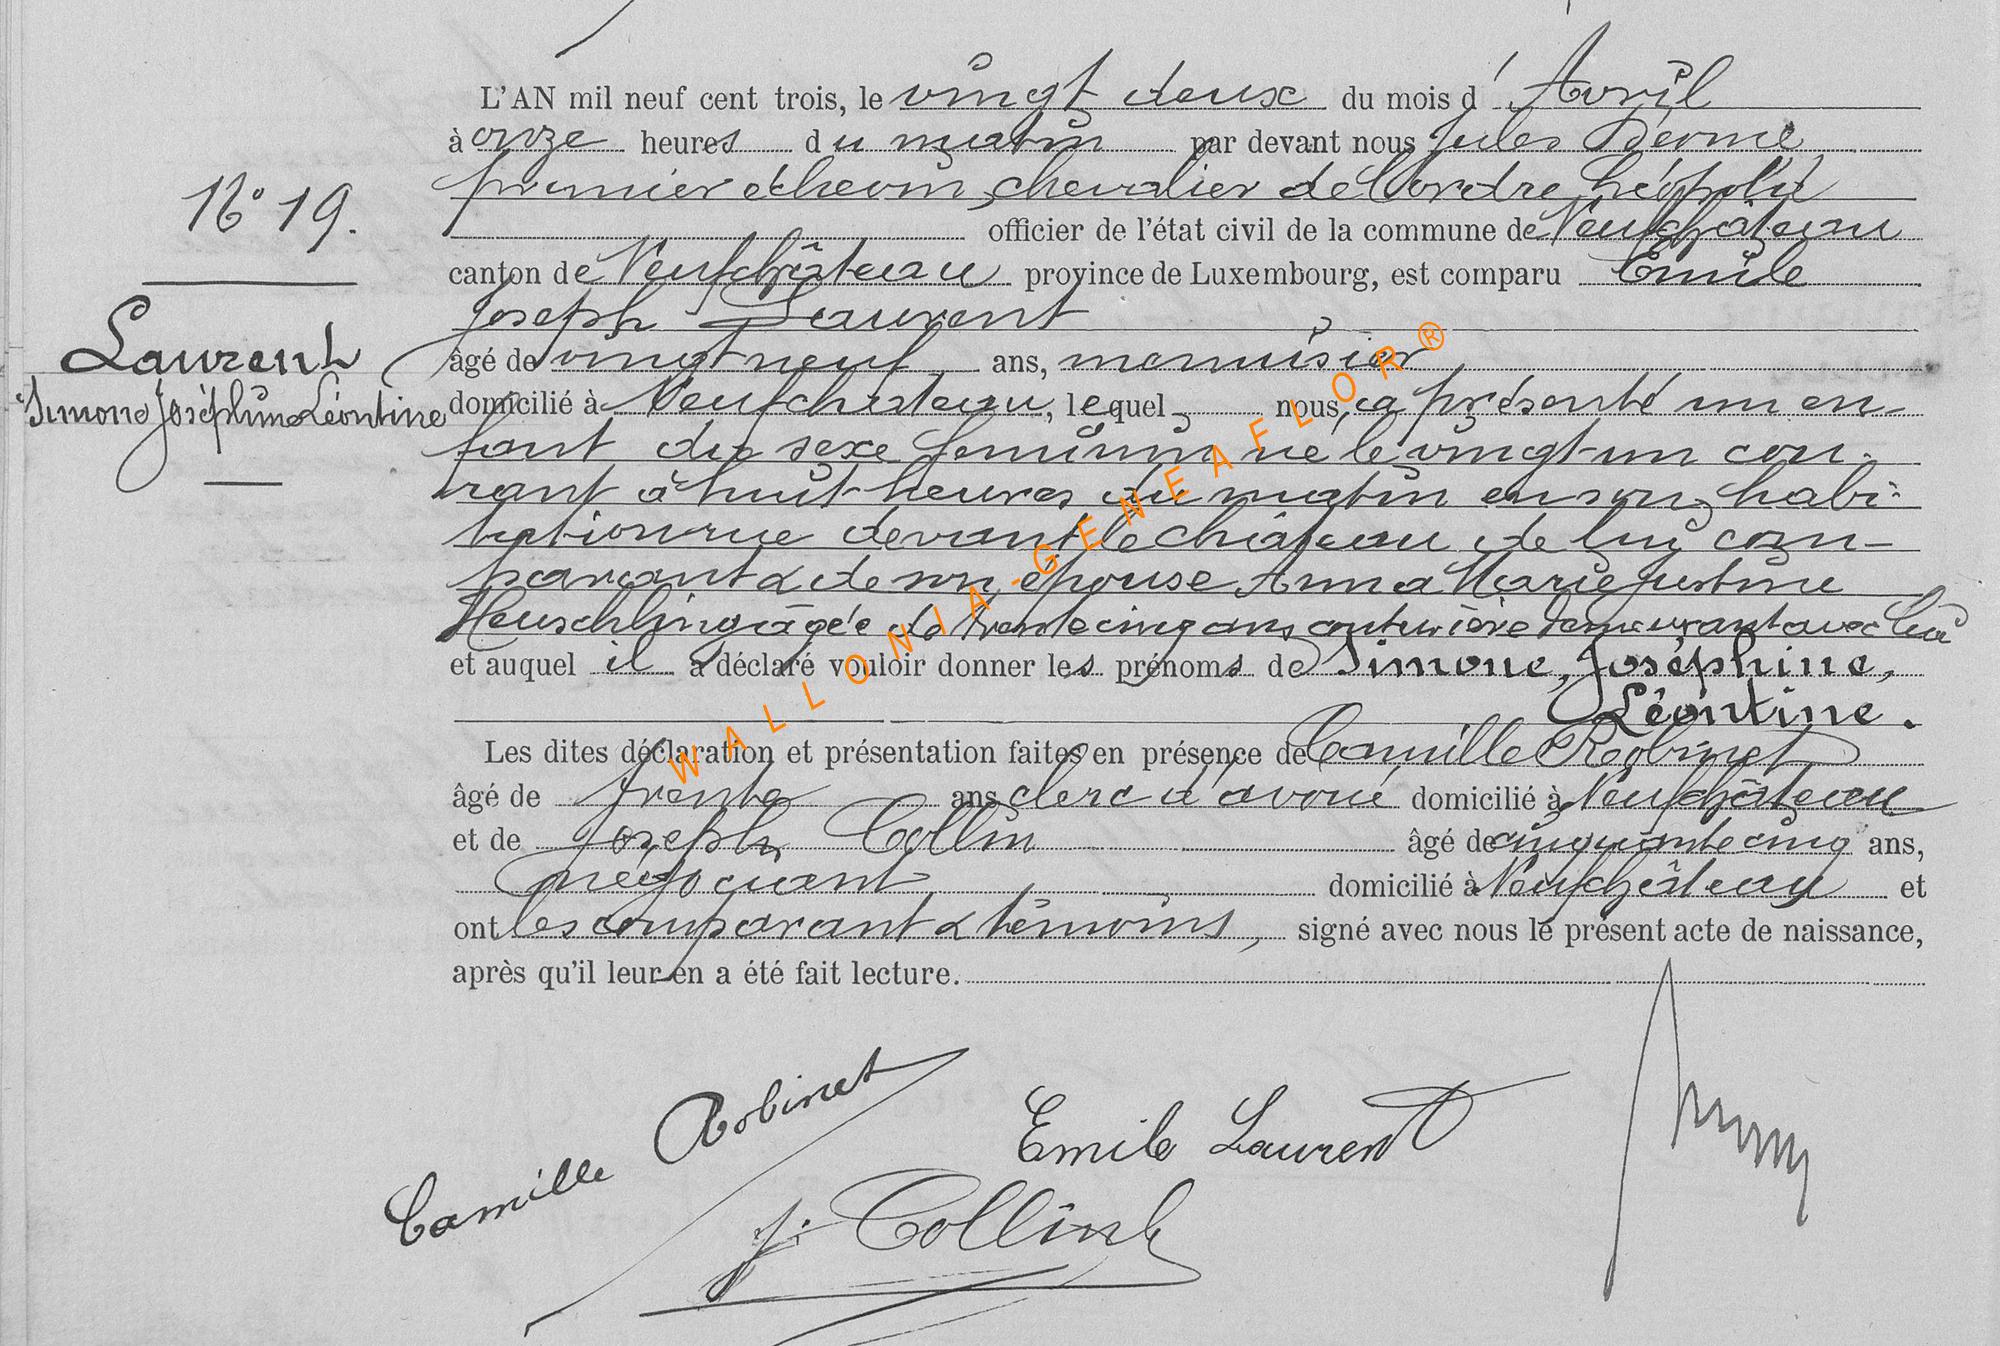 L'AN mil neuf cent trois, le vingt deux du mois d' Avril
à onze heures du matin par devant nous Jules
premier échevin, chevalier de l'ordre Léopold
N° 19.
officier de l'état civil de la commune de Neufchâteau
canton de Neufchâteau province de Luxembourg, est comparu Emile
Joseph Laurent
Laurent
âgé de vingt neuf ans, menuisier
Simone Joséphine Léontine
domicilié à Neufchateau, lequel nous a présenté un en-
fant du sexe feminin né le vingt-un cou-
rant à huit heures du matin en son habi-
tation rue devant le château de lui com-
parant & de son épouse Anna Marie Justine
Heuschling âgée de trente cinq ans couturière demeurant avec lui
et auquel il a déclaré vouloir donner les prénoms de Simone, Joséphine,
Léontine.
Les dites déclaration et présentation faites en présence de Camille Robinet
âgé de trente ans clerc d'avoué domicilié à Neufchâteau
et de Joseph Collin âgé de cinquante cinq ans,
négociant domicilié à Neufchâteau et
ont les comparant & témoins, signé avec nous le présent acte de naissance,
après qu'il leur en a été fait lecture.
WALLONIA-GENEAFLOR®
Camille Robinet
Emile Laurent
J. Collin